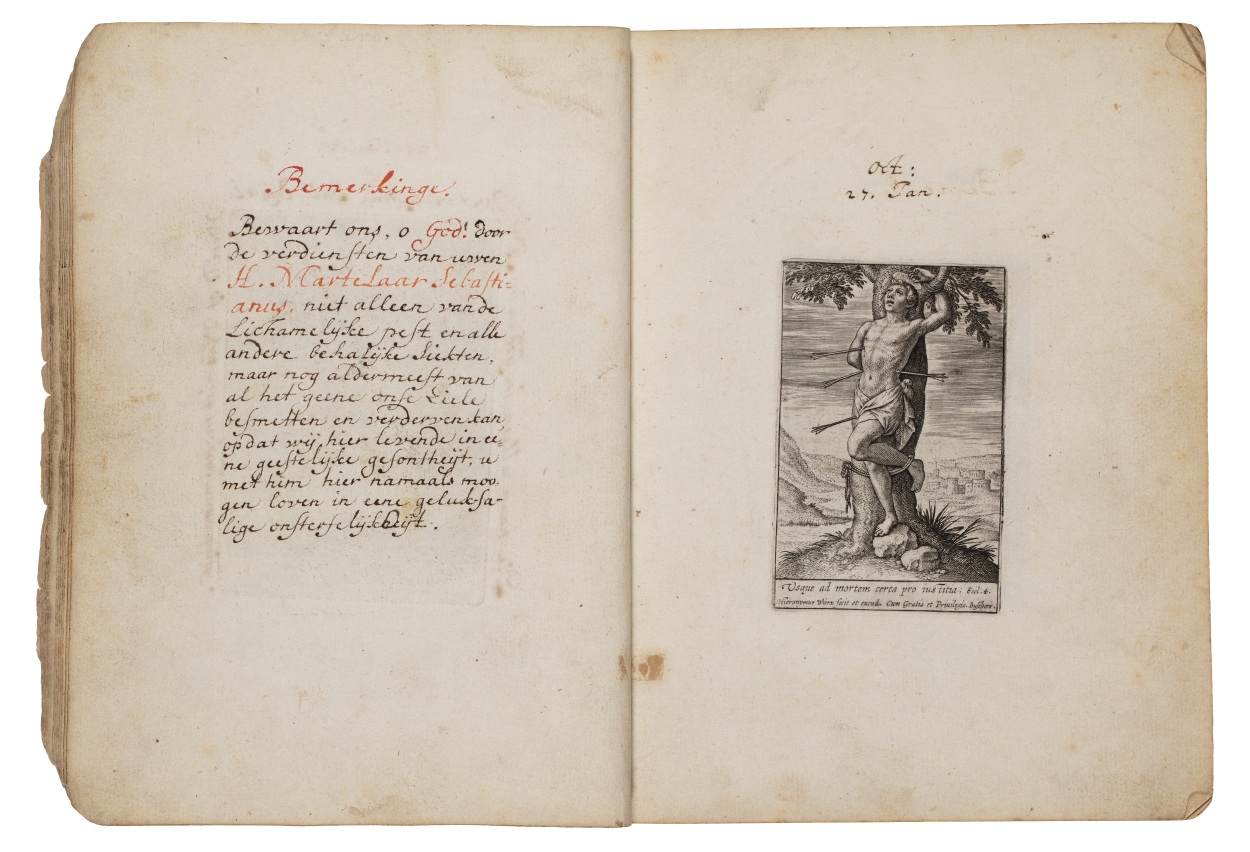 Bemerkinge.
Bewaart ons, o God! door
de verdiensten van uwen
H. Martelaar Sebasti=
anus, niet alleen van de
Lichamelijke pest en alle
andere behalijke siekten,
maar nog aldermeest van
al het geene onse Ziele
besmetten en verderven kan
opdat wij hier levende in ee-
ne geestelijke gesontheijt, u
met him hier namaals moo-
gen loven in eene geluksa-
lige onsterfelijkheijt.
oct:
27. Jan:
Usque ad mortem certa pro iustitia. Eccl. 4.
Hieronymus Wierx fecit et excud. Cum Gratia et Privilegio. Buschere.